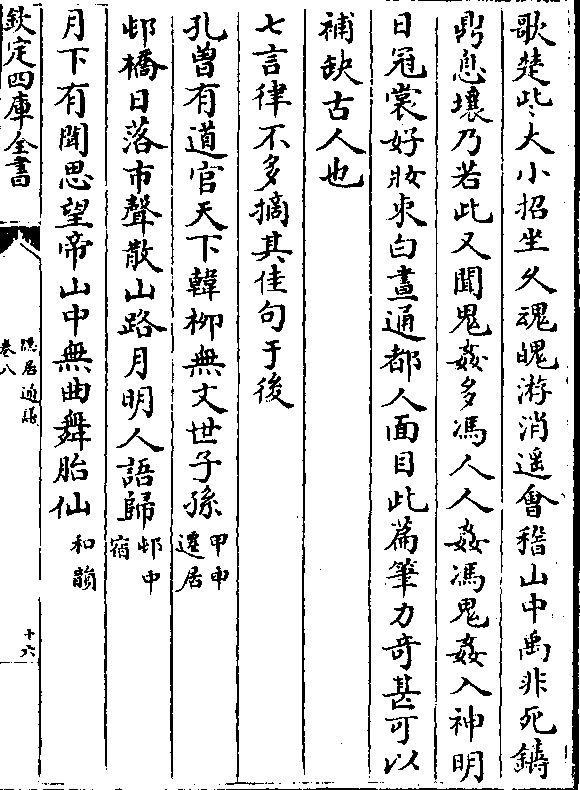 歌楚些大小招坐乆魂魄游消遥㑹稽山中禹非死鑄
鼎息壤乃若此又聞鬼姦多馮人人姦馮鬼姦入神明
日冠裳好妝束白晝通都人面目此篇筆力竒甚可以
補缺古人也
七言律不多摘其佳句于後
孔曽有道官天下韓栁無文世子孫甲申遷居
邨橋日落市聲散山路月明人語歸邨中宿
月下有聞思望帝山中無曲舞胎仙和韻
欽定四庫全書
隠居通議
卷八
十六